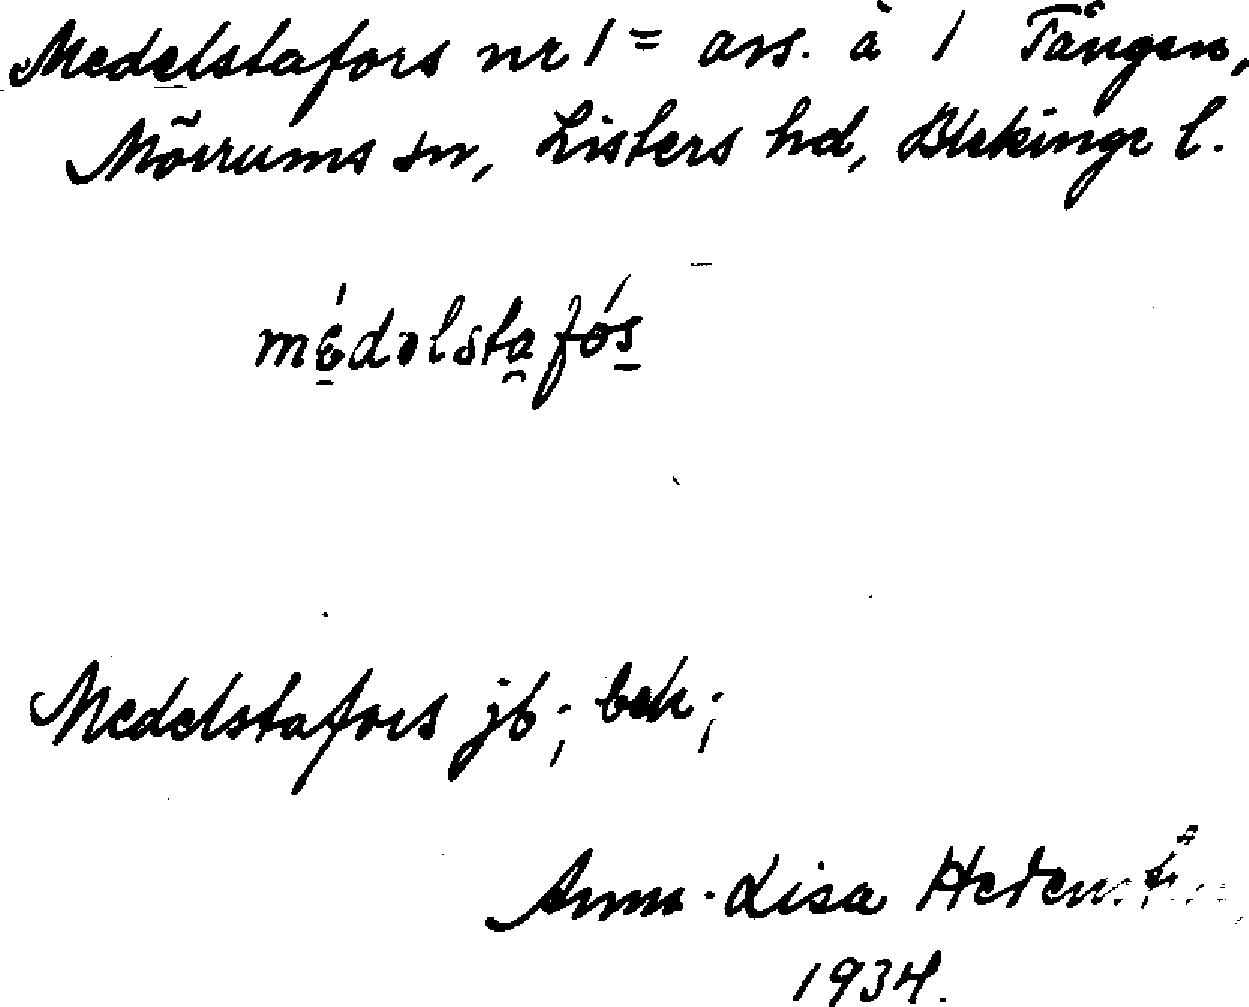 Medelstafors nr 1 = avs. å 1 Tången,
Mörrums sn, Listers hd, Blekinge l.
médəlstafós
Medelstafors jb; bek;
Anna-Lisa
1934.